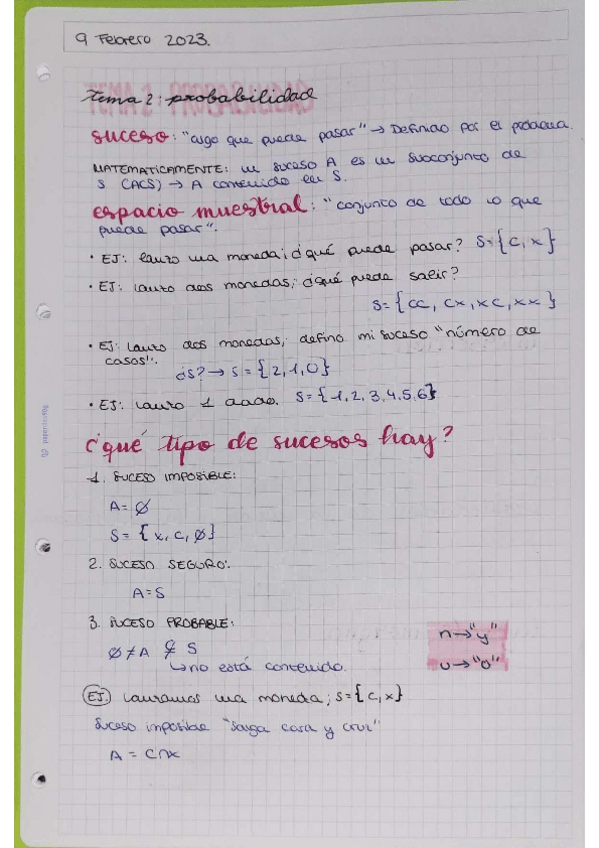 9 Febrero 2023.
Tema 2: probabilidad
suceso: "algo que puede pasar" → Definido por el problema.
MATEMATICAMENTE: un suceso A es un subconjunto de
S (A⊂S) → A contenido en S.
espacio muestral: "conjunto de todo lo que
puede pasar".
• EJ: lanzo una moneda; ¿qué puede pasar? S={C,X}
• EJ: lanzo dos monedas; ¿qué puede salir?
S={CC, CX, XC, XX}
• EJ: lanzo dos monedas; defino mi suceso "número de
casos".
¿S? → S={2,1,0}
• EJ: lanzo 1 dado. S={1,2,3,4,5,6}
¿qué tipo de sucesos hay?
1. SUCESO IMPOSIBLE:
A=∅
S={X,C,∅}
2. SUCESO SEGURO:
A=S
3. SUCESO PROBABLE:
n→"y"
∅≠A ⊊ S
∪→"o"
↳no está contenido.
EJ. Lanzamos una moneda; S={C,X}
Suceso imposible "Salga cara y cruz"
A = C∩X